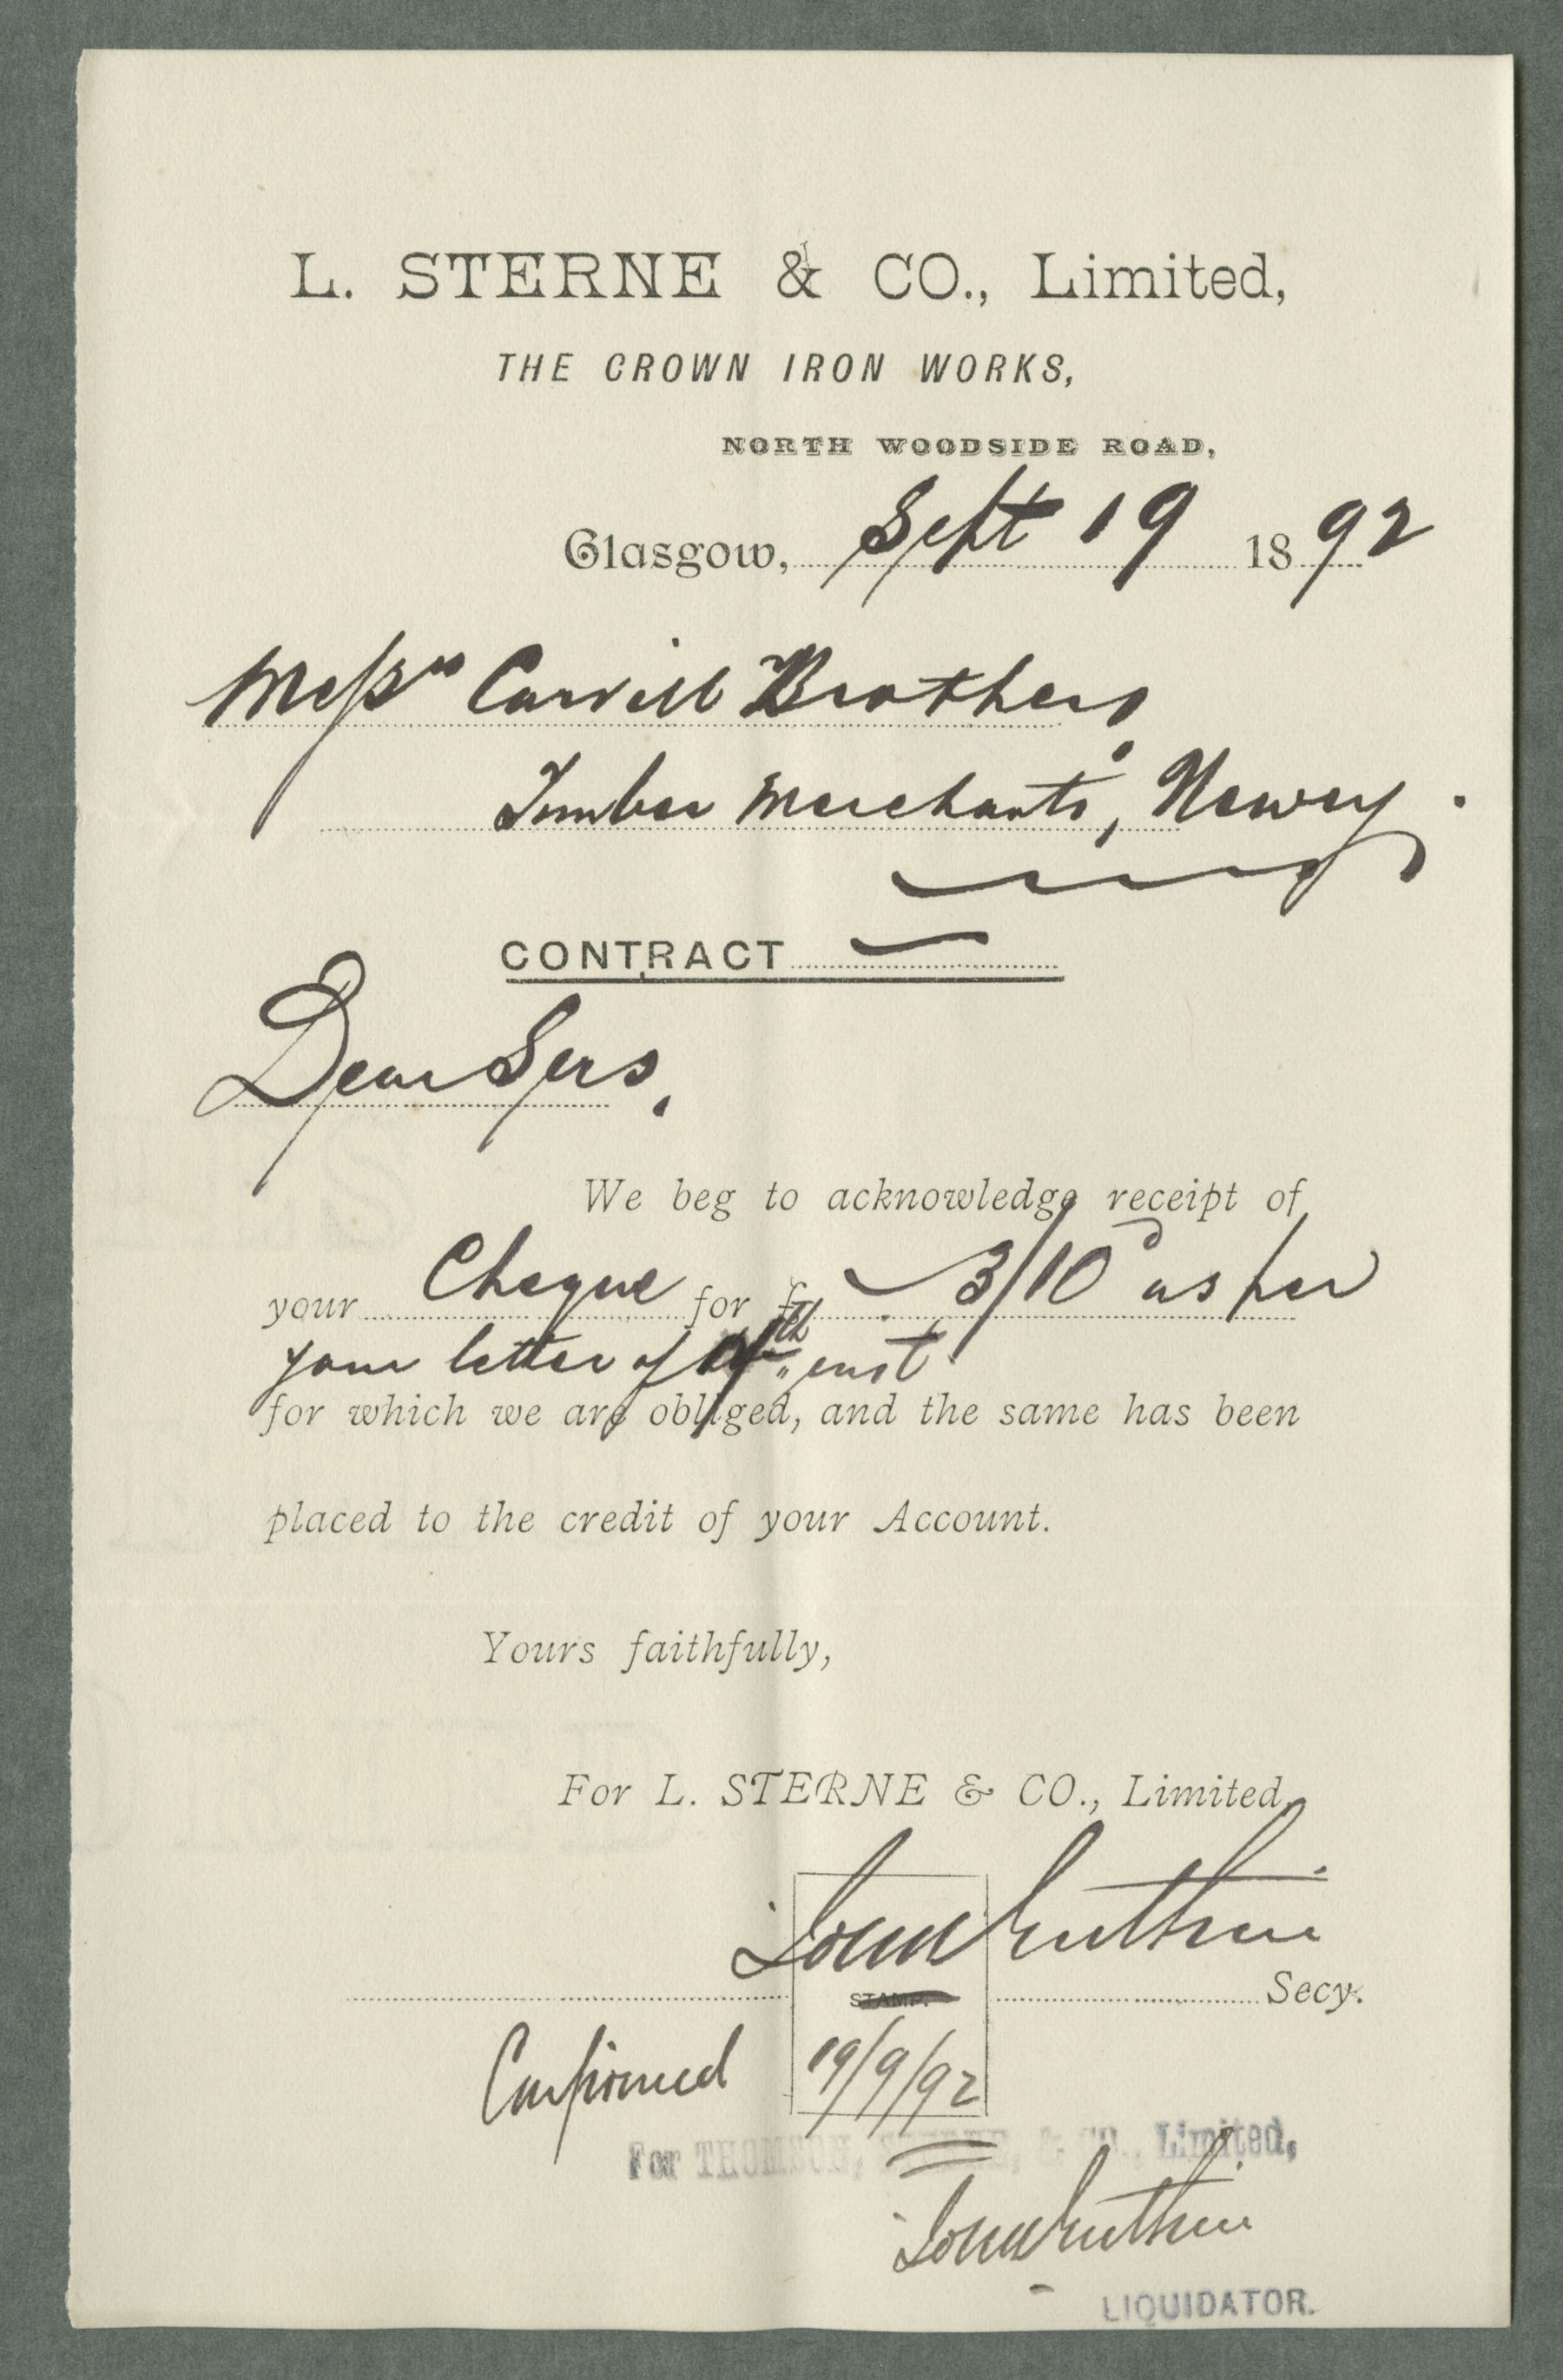 L. STERNE & CO., Limited,
THE CROWN IRON WORKS,
NORTH WOODSIDE ROAD,
Glasgow, Sept 19 1892
Messrs Carvill Brothers
Timber Merchants, Newry.
CONTRACT
Dear Sirs,
We beg to acknowledge receipt of
your Cheque for £ 3/10d as per
your letter of th inst
for which we are obliged, and the same has been
placed to the credit of your Account.
Yours faithfully,
For L. STERNE & CO., Limited,
John Guthrie
STAMP. Secy.
Confirmed 19/9/92
For THOMSON, STERNE, & CO., Limited,
John Guthrie
LIQUIDATOR.